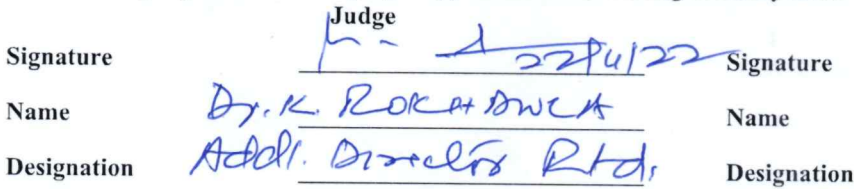 Judge
Signature 22/4/22 Signature
Name Dr. K. Name
Designation Addl. Director Rtd. Designation